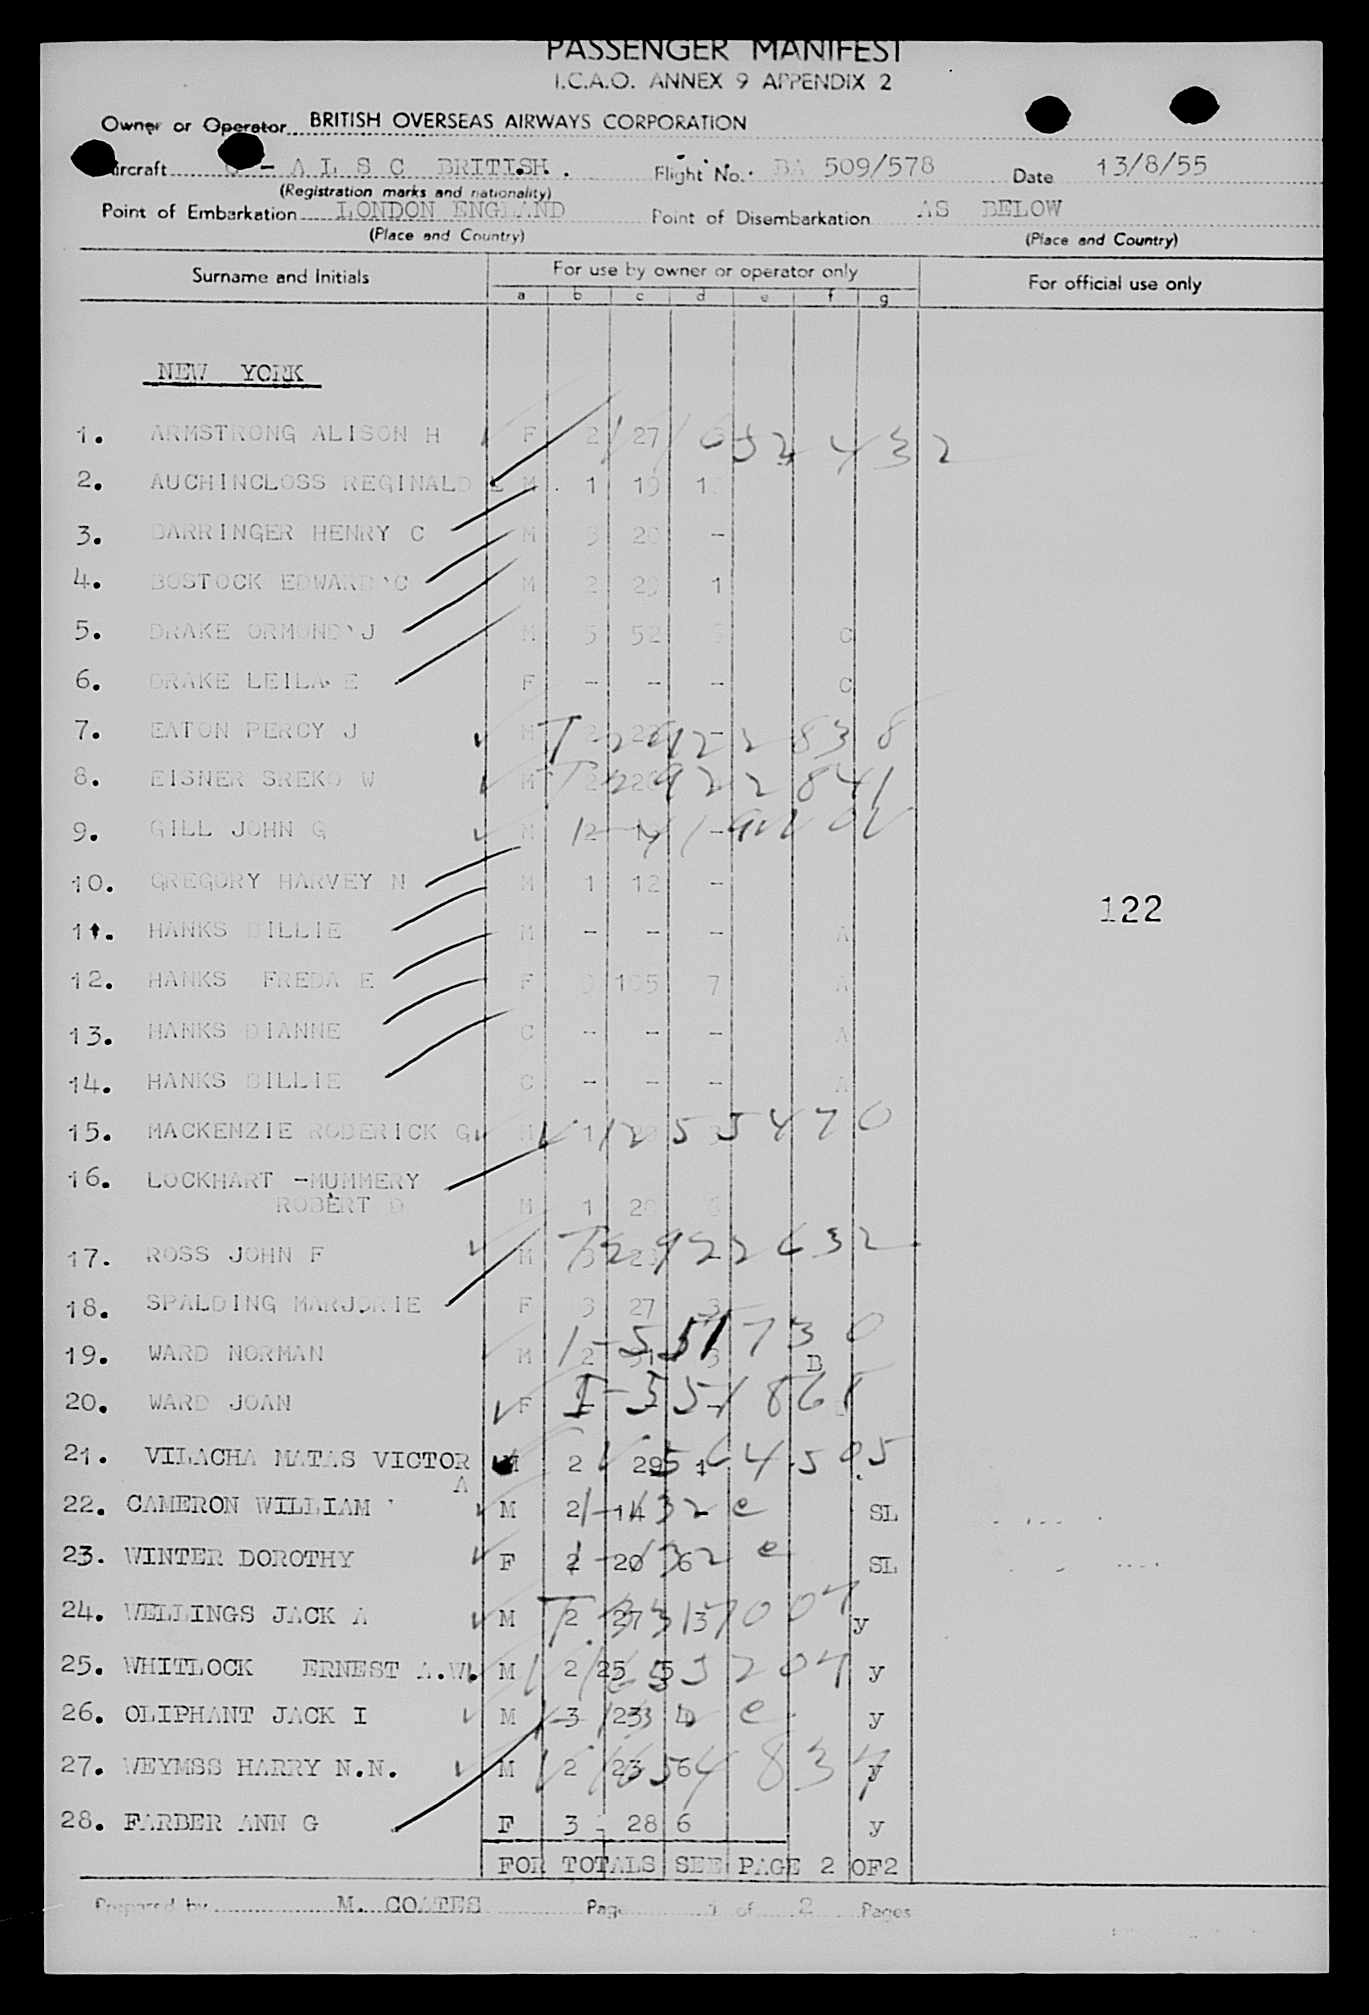 PASSENGER MANIFEST
I.C.A.O. ANNEX 9 APPENDIX 2
Owner or Operator BRITISH OVERSEAS AIRWAYS CORPORATION
ircraft - A L S C BRITISH. Flight No. BA 509/578 Date 13/8/55
(Registration marks and nationality)
Point of Embarkation LONDON ENGLAND Point of Disembarkation AS BELOW
(Place and Country) (Place and Country)
Surname and Initials For use by owner or operator only For official use only
a b c d e f g
NEW YORK
1. ARMSTRONG ALISON H F 2 27 52 432
2. AUCHINCLOSS REGINALD L M 1 19 1
3. BARRINGER HENRY C M 3 20 -
4. BOSTOCK EDWARD C M 2 29 1
5. DRAKE ORMOND J M 5 52 C
6. DRAKE LEILA E F - - - C
7. EATON PERCY J M 2 T-2922838
8. EISNER SREKO W M 2 T-2922841
9. GILL JOHN G M -
10. GREGORY HARVEY N M 1 12 -
11. HANKS BILLIE M - - - A
12. HANKS FREDA E F 105 7 A
13. HANKS DIANNE C - - - A
14. HANKS BILLIE C - - - A
15. MACKENZIE RODERICK G M 1 V1255470
16. LOCKHART -MUMMERY
ROBERT D M 1 20
17. ROSS JOHN F M 3 23 T2922632
18. SPALDING MARJORIE F 3 27 3
19. WARD NORMAN M 2 31 3 B 1-551730
20. WARD JOAN F - - - I-551861
21. VILACHA MATAS VICTOR M 2 29 1 V564505
A
22. CAMERON WILLIAM M 2 14 - SL
23. WINTER DOROTHY F 2 20 6 SL
24. WELLINGS JACK A M 2 27 3 y
25. WHITLOCK ERNEST A.W. M 2 25 5 y
26. OLIPHANT JACK I M 3 23 4 y
27. WEYMSS HARRY N.N. M 2 23 6 y
28. FARBER ANN G F 3 28 6 y
122
FOR TOTALS SEE PAGE 2 OF2
Prepared by M. COATES Page 1 of 2 Pages